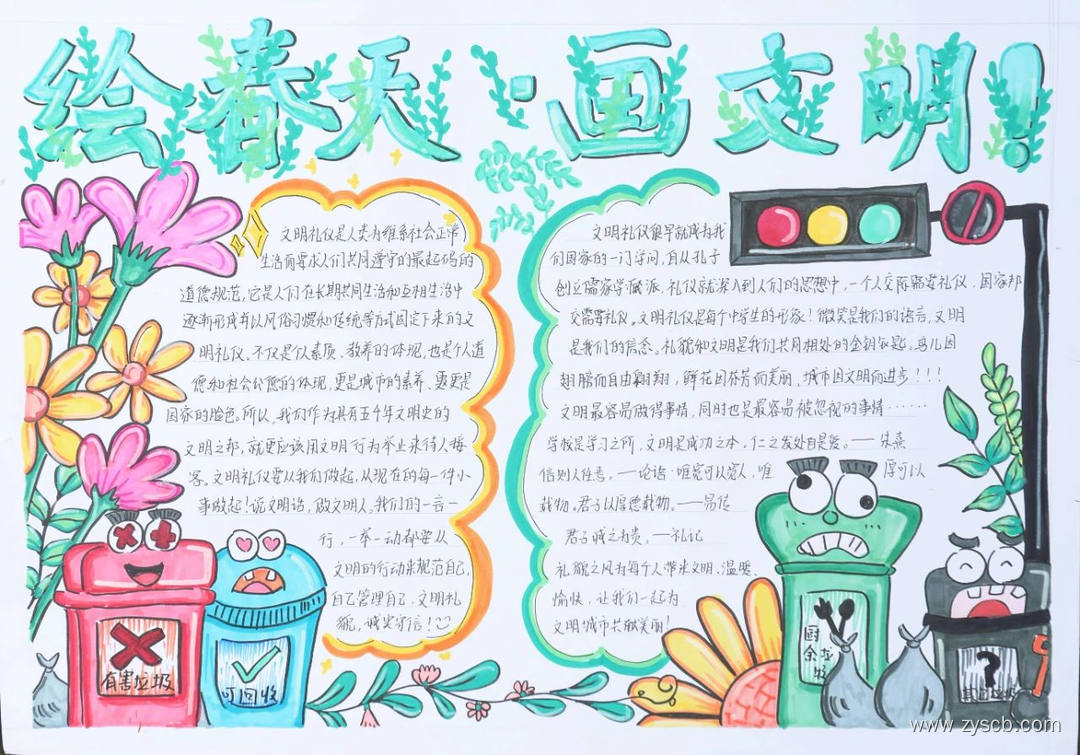 绘春天·画文明!
文明礼仪是人类为维系社会正常
生活而要求人们共同遵守的最起码的
道德规范,它是人们在长期共同生活和互相生活中
逐渐形成并以风俗习惯和传统等方式固定下来的文
明礼仪。不仅是个人素质、教养的体现,也是个人道
德和社会公德的体现,更是城市的素养、更是
国家的脸色。所以,我们作为具有五千年文明史的
文明之邦,就更应该用文明行为举业来待人接
客。文明礼仪要从我们做起,从现在的每一件小
事做起!说文明话,做文明人。我们的一言一
行,一举一动都要从
文明的行动来规范自己,
自己管理自己,文明礼
貌,诚实守信!
文明礼仪很早就成为我
们国家的一门学问,自从孔子
创立儒家学派,礼仪就深入到人们的思想中,一个人交际需要礼仪,国家邦
交需要礼仪。文明礼仪是每个中学生的形象!微笑是我们的语言,文明
是我们的信念。礼貌和文明是我们共同相处的金钥匙。鸟儿因
翅膀而自由翱翔,鲜花因芬芳而美丽,城市因文明而进步!!!
文明最容易做得事情,同时也是最容易被忽视的事情······
学校是学习之所,文明是成功之本,仁之发处自是爱。——朱熹
信则人任焉。——论语·唯宽可以容人,唯厚可以
载物。君子以厚德载物。——易传
君子诚之为贵。——礼记
礼貌之风为每个人带来文明、温暖、
愉快,让我们一起为
文明城市共献美丽!
有害垃圾
可回收
厨
余垃
圾
?
其他垃圾
www.zyscb.com